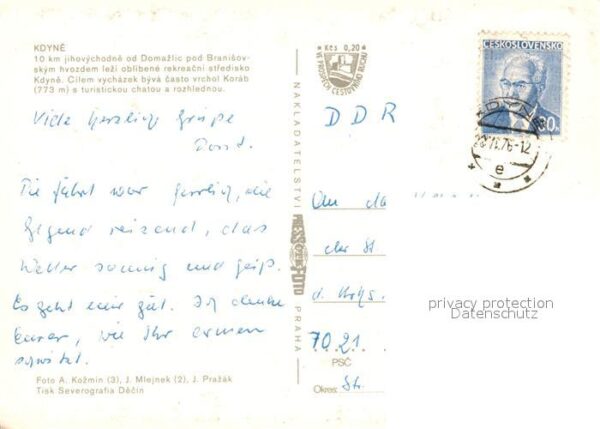 KDYNĚ
10 km jihovýchodně od Domažlic pod Branišov-
ským hvozdem leží oblíbené rekreační středisko
Kdyně. Cílem vycházek bývá často vrchol Koráb
(773 m) s turistickou chatou a rozhlednou.
Viele herzliche Grüße
Die Fahrt war herrlich, die
Gegend reizend, das
Wetter sonnig und heiß.
Es geht mir gut. Ich denke
wie Ihr
Foto A. Kožmín (3), J. Mlejnek (2), J. Pražák
Tisk Severografia Děčín
NAKLADATELSTVÍ
PRAHA
Kčs 0,20
VE PROSPĚCH CESTOVNÍHO RUCHU
DDR
ČESKOSLOVENSKO
30h
KDYNĚ
76-12
e
An da
der St
70 21
PSČ
Okres: St.
privacy protection
Datenschutz